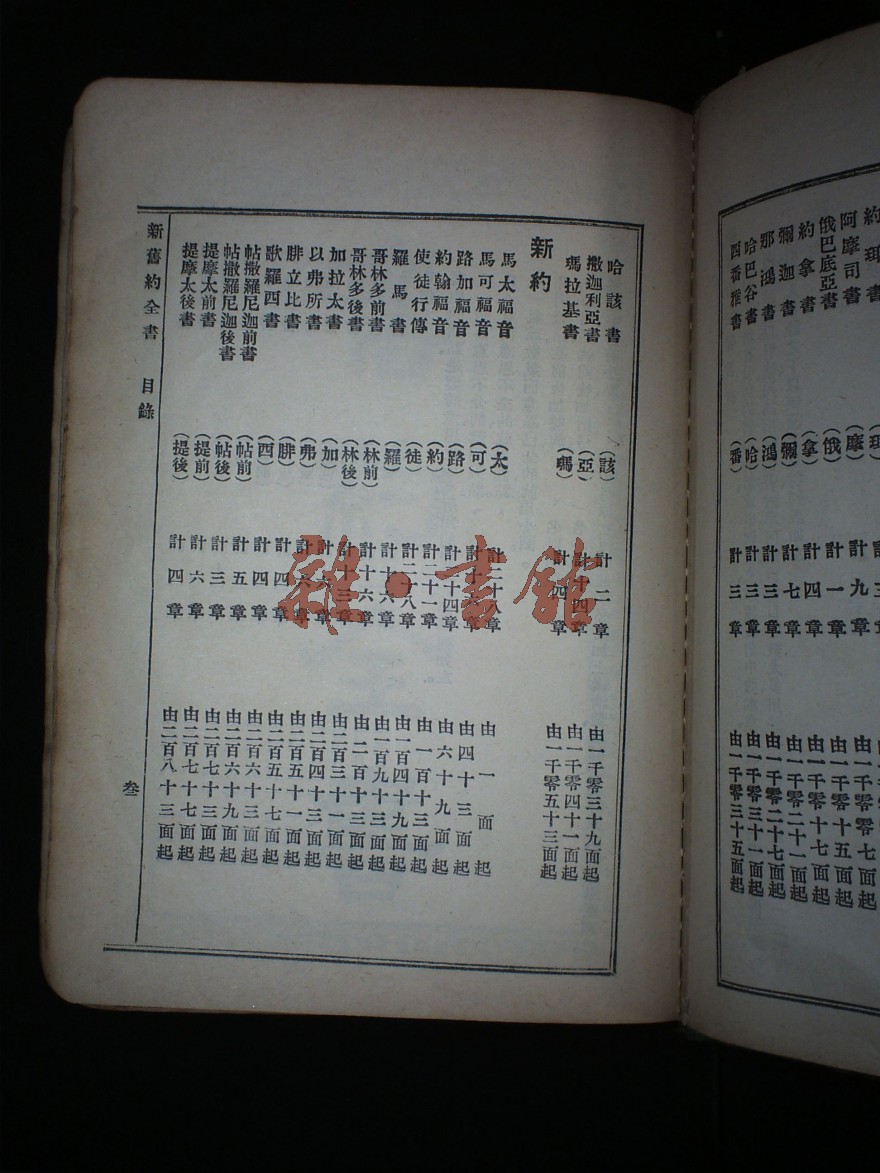 約珥書 (珥) 計三
阿摩司書 (摩) 計九章 由一千零零七面起
俄巴底亞書 (俄) 計一章 由一千零十五面起
約拿書 (拿) 計四章 由一千零十七面起
彌迦書 (彌) 計七章 由一千零二十一面起
那鴻書 (鴻) 計三章 由一千零二十七面起
哈巴谷書 (哈) 計三章 由一千零三十一面起
西番雅書 (番) 計三章 由一千零三十五面起
哈該書 (該) 計二章 由一千零三十九面起
撒迦利亞書 (亞) 計十四章 由一千零四十一面起
瑪拉基書 (瑪) 計四章 由一千零五十三面起
新約
馬太福音 (太) 計二十八章 由一面起
馬可福音 (可) 計十六章 由四十三面起
路加福音 (路) 計二十四章 由六十九面起
約翰福音 (約) 計二十一章 由一百十三面起
使徒行傳 (徒) 計二十八章 由一百四十九面起
羅馬書 (羅) 計十六章 由一百九十三面起
哥林多前書 (林前) 計十六章 由二百十三面起
哥林多後書 (林後) 計十三章 由二百三十一面起
加拉太書 (加) 計六章 由二百四十三面起
以弗所書 (弗) 計六章 由二百五十一面起
腓立比書 (腓) 計四章 由二百五十七面起
歌羅西書 (西) 計四章 由二百六十三面起
帖撒羅尼迦前書 (帖前) 計五章 由二百六十九面起
帖撒羅尼迦後書 (帖後) 計三章 由二百七十三面起
提摩太前書 (提前) 計六章 由二百七十七面起
提摩太後書 (提後) 計四章 由二百八十三面起
新舊約全書 目錄 叁
雜·書館